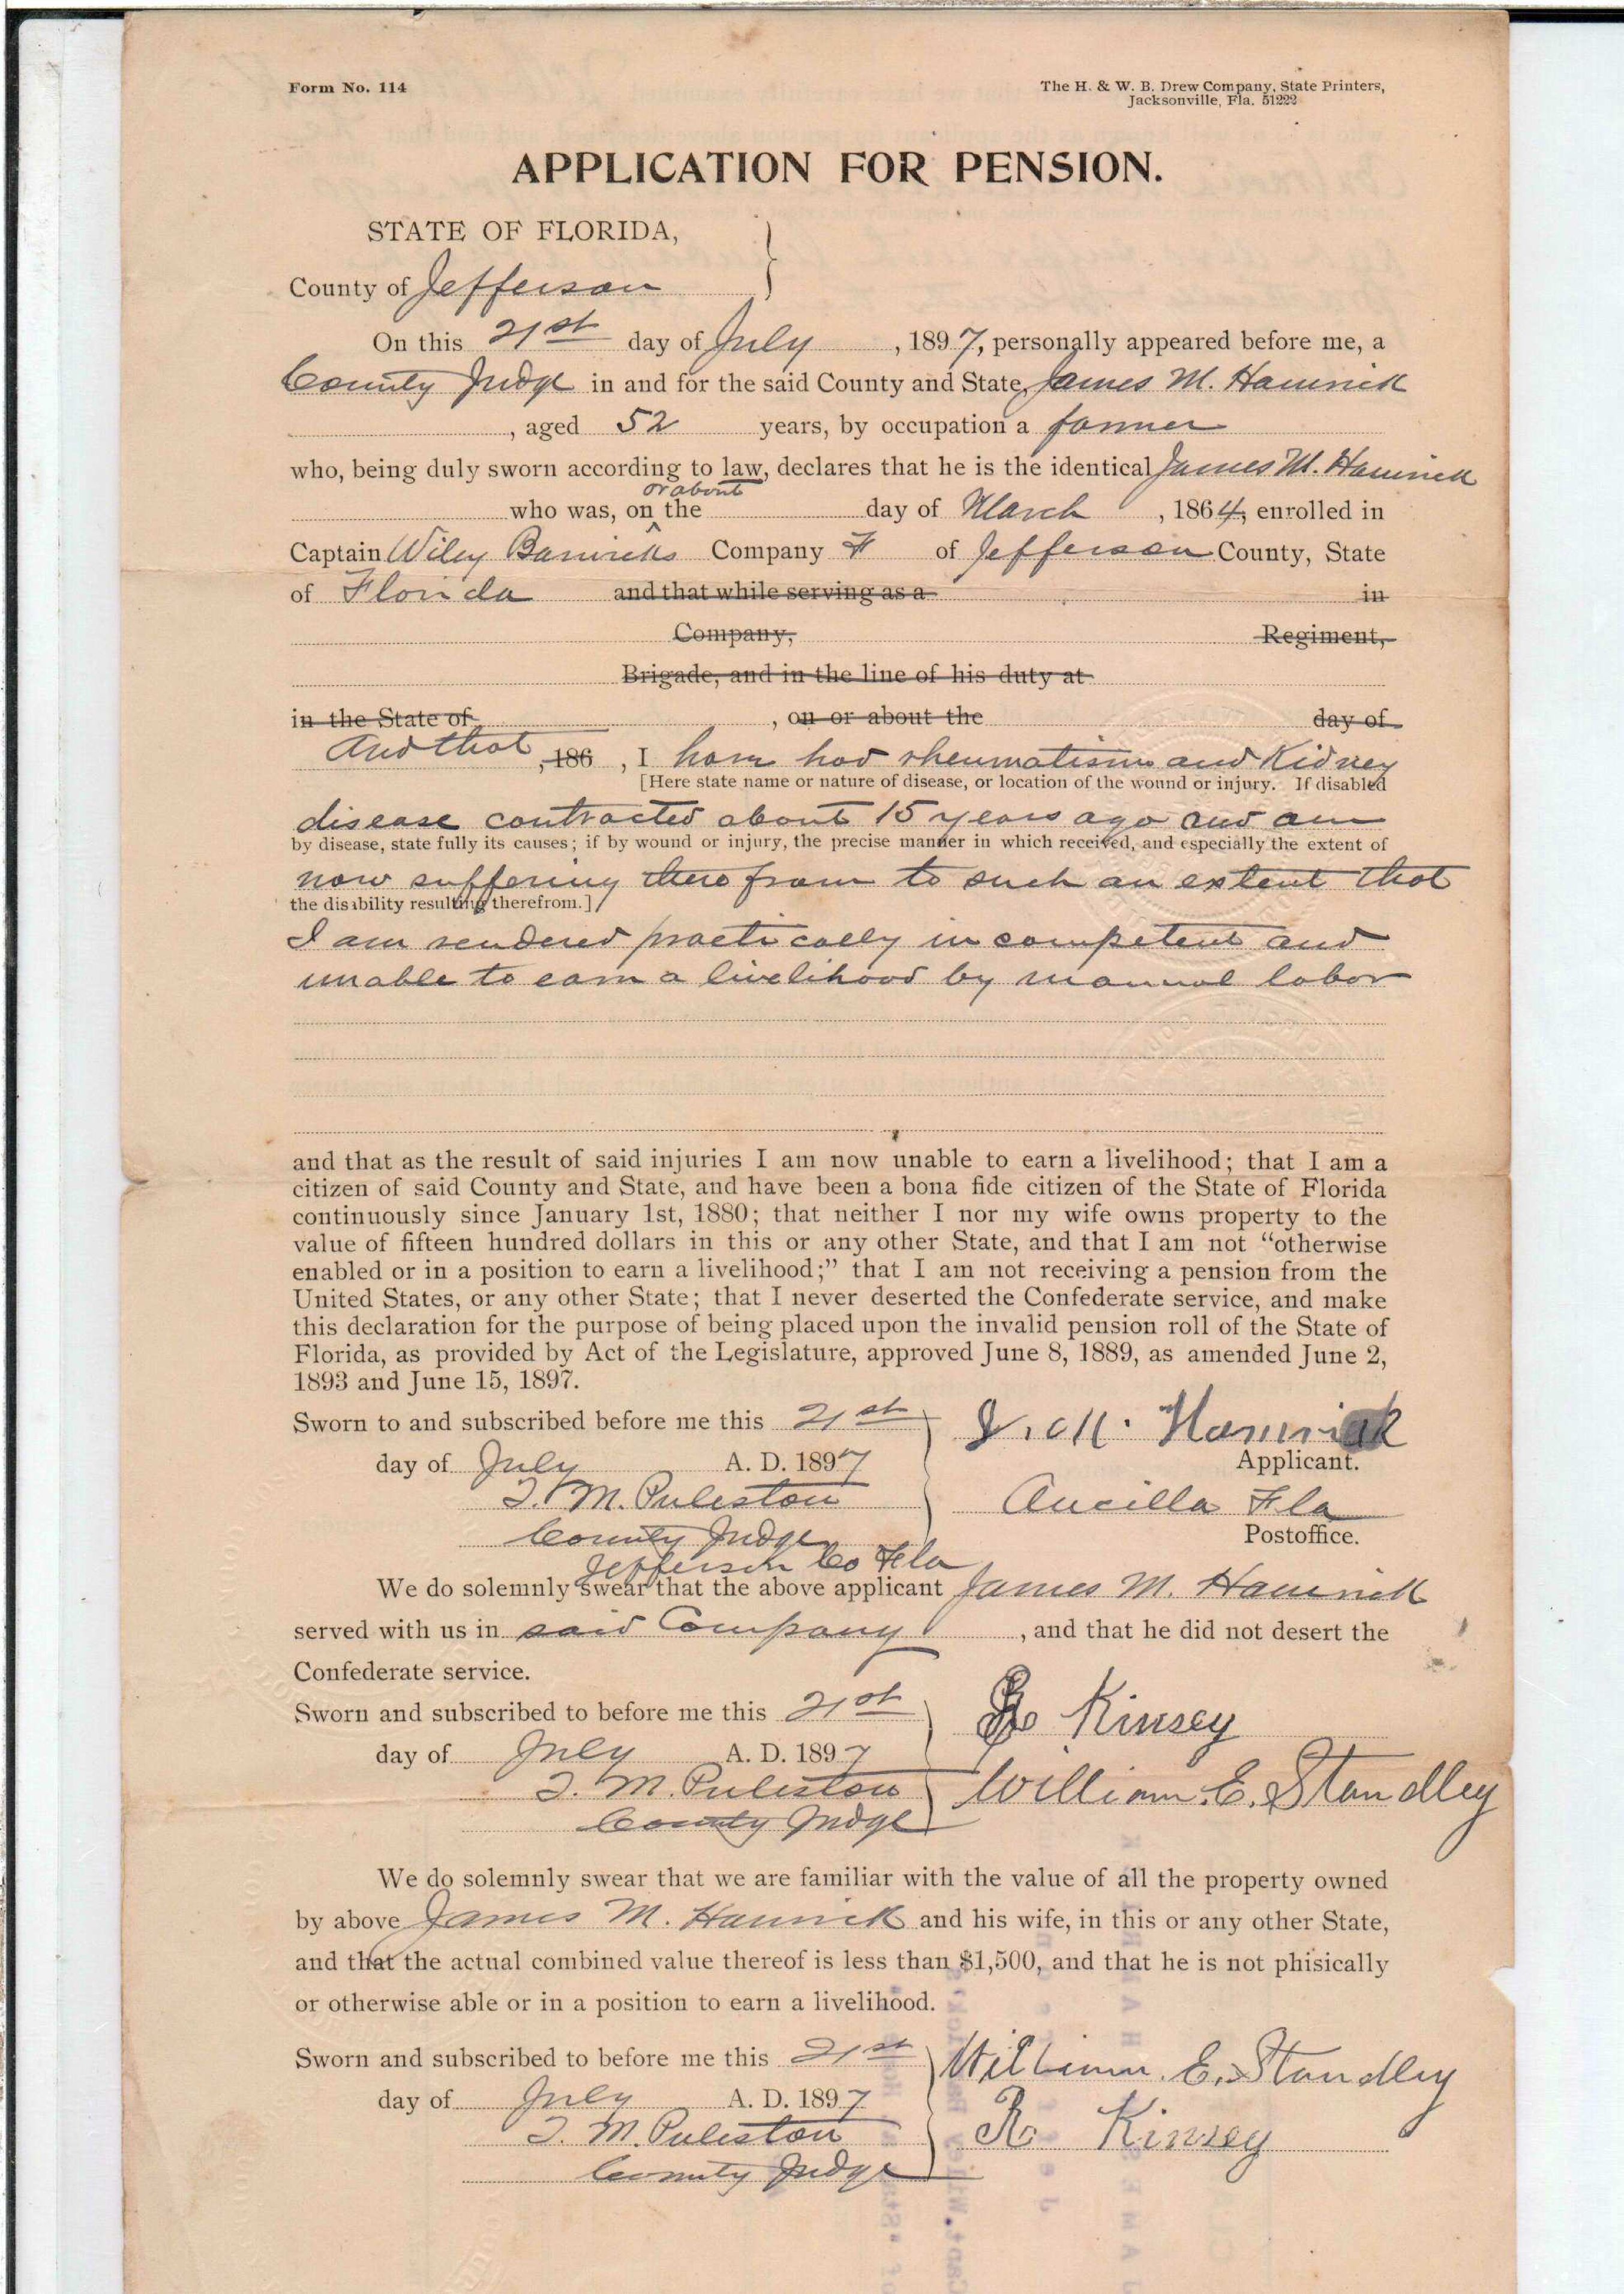 Form No. 114
The H. & W. B. Drew Company, State Printers,
Jacksonville, Fla. 51222
APPLICATION FOR PENSION.
STATE OF FLORIDA,
County of Jefferson
On this 21st day of July, 1897, personally appeared before me, a
County Judge in and for the said County and State, James M. Hamrick
, aged 52 years, by occupation a farmer
who, being duly sworn according to law, declares that he is the identical James M. Hamrick
or about
who was, on the day of March, 1864, enrolled in
Captain Wiley Barwicks Company F of Jefferson County, State
of Florida and that while serving as a in
Company, Regiment,
Brigade, and in the line of his duty at
in the State of , on or about the day of
And that , 186 , I have had rheumatism and Kidney
[Here state name or nature of disease, or location of the wound or injury. If disabled
disease contracted about 15 years ago and am
by disease, state fully its causes; if by wound or injury, the precise manner in which received, and especially the extent of
now suffering therefrom to such an extent that
the disability resulting therefrom.]
I am rendered practically incompetent and
unable to earn a livelihood by manual labor
and that as the result of said injuries I am now unable to earn a livelihood; that I am a
citizen of said County and State, and have been a bona fide citizen of the State of Florida
continuously since January 1st, 1880; that neither I nor my wife owns property to the
value of fifteen hundred dollars in this or any other State, and that I am not "otherwise
enabled or in a position to earn a livelihood;" that I am not receiving a pension from the
United States, or any other State; that I never deserted the Confederate service, and make
this declaration for the purpose of being placed upon the invalid pension roll of the State of
Florida, as provided by Act of the Legislature, approved June 8, 1889, as amended June 2,
1893 and June 15, 1897.
Sworn to and subscribed before me this 21st
J. M. Hamrick
Applicant.
day of July A. D. 1897
T. M. Puleston
Aucilla Fla
County Judge
Postoffice.
Jefferson Co Fla
We do solemnly swear that the above applicant James M. Hamrick
served with us in said Company , and that he did not desert the
Confederate service.
Sworn and subscribed to before me this 21st
Kinsey
day of July A. D. 1897
T. M. Puleston
William. E. Standley
County Judge
We do solemnly swear that we are familiar with the value of all the property owned
by above James M. Hamrick and his wife, in this or any other State,
and that the actual combined value thereof is less than $1,500, and that he is not phisically
or otherwise able or in a position to earn a livelihood.
Sworn and subscribed to before me this 21st
William. E. Standley
day of July A. D. 1897
T. M. Puleston
R Kinsey
County Judge